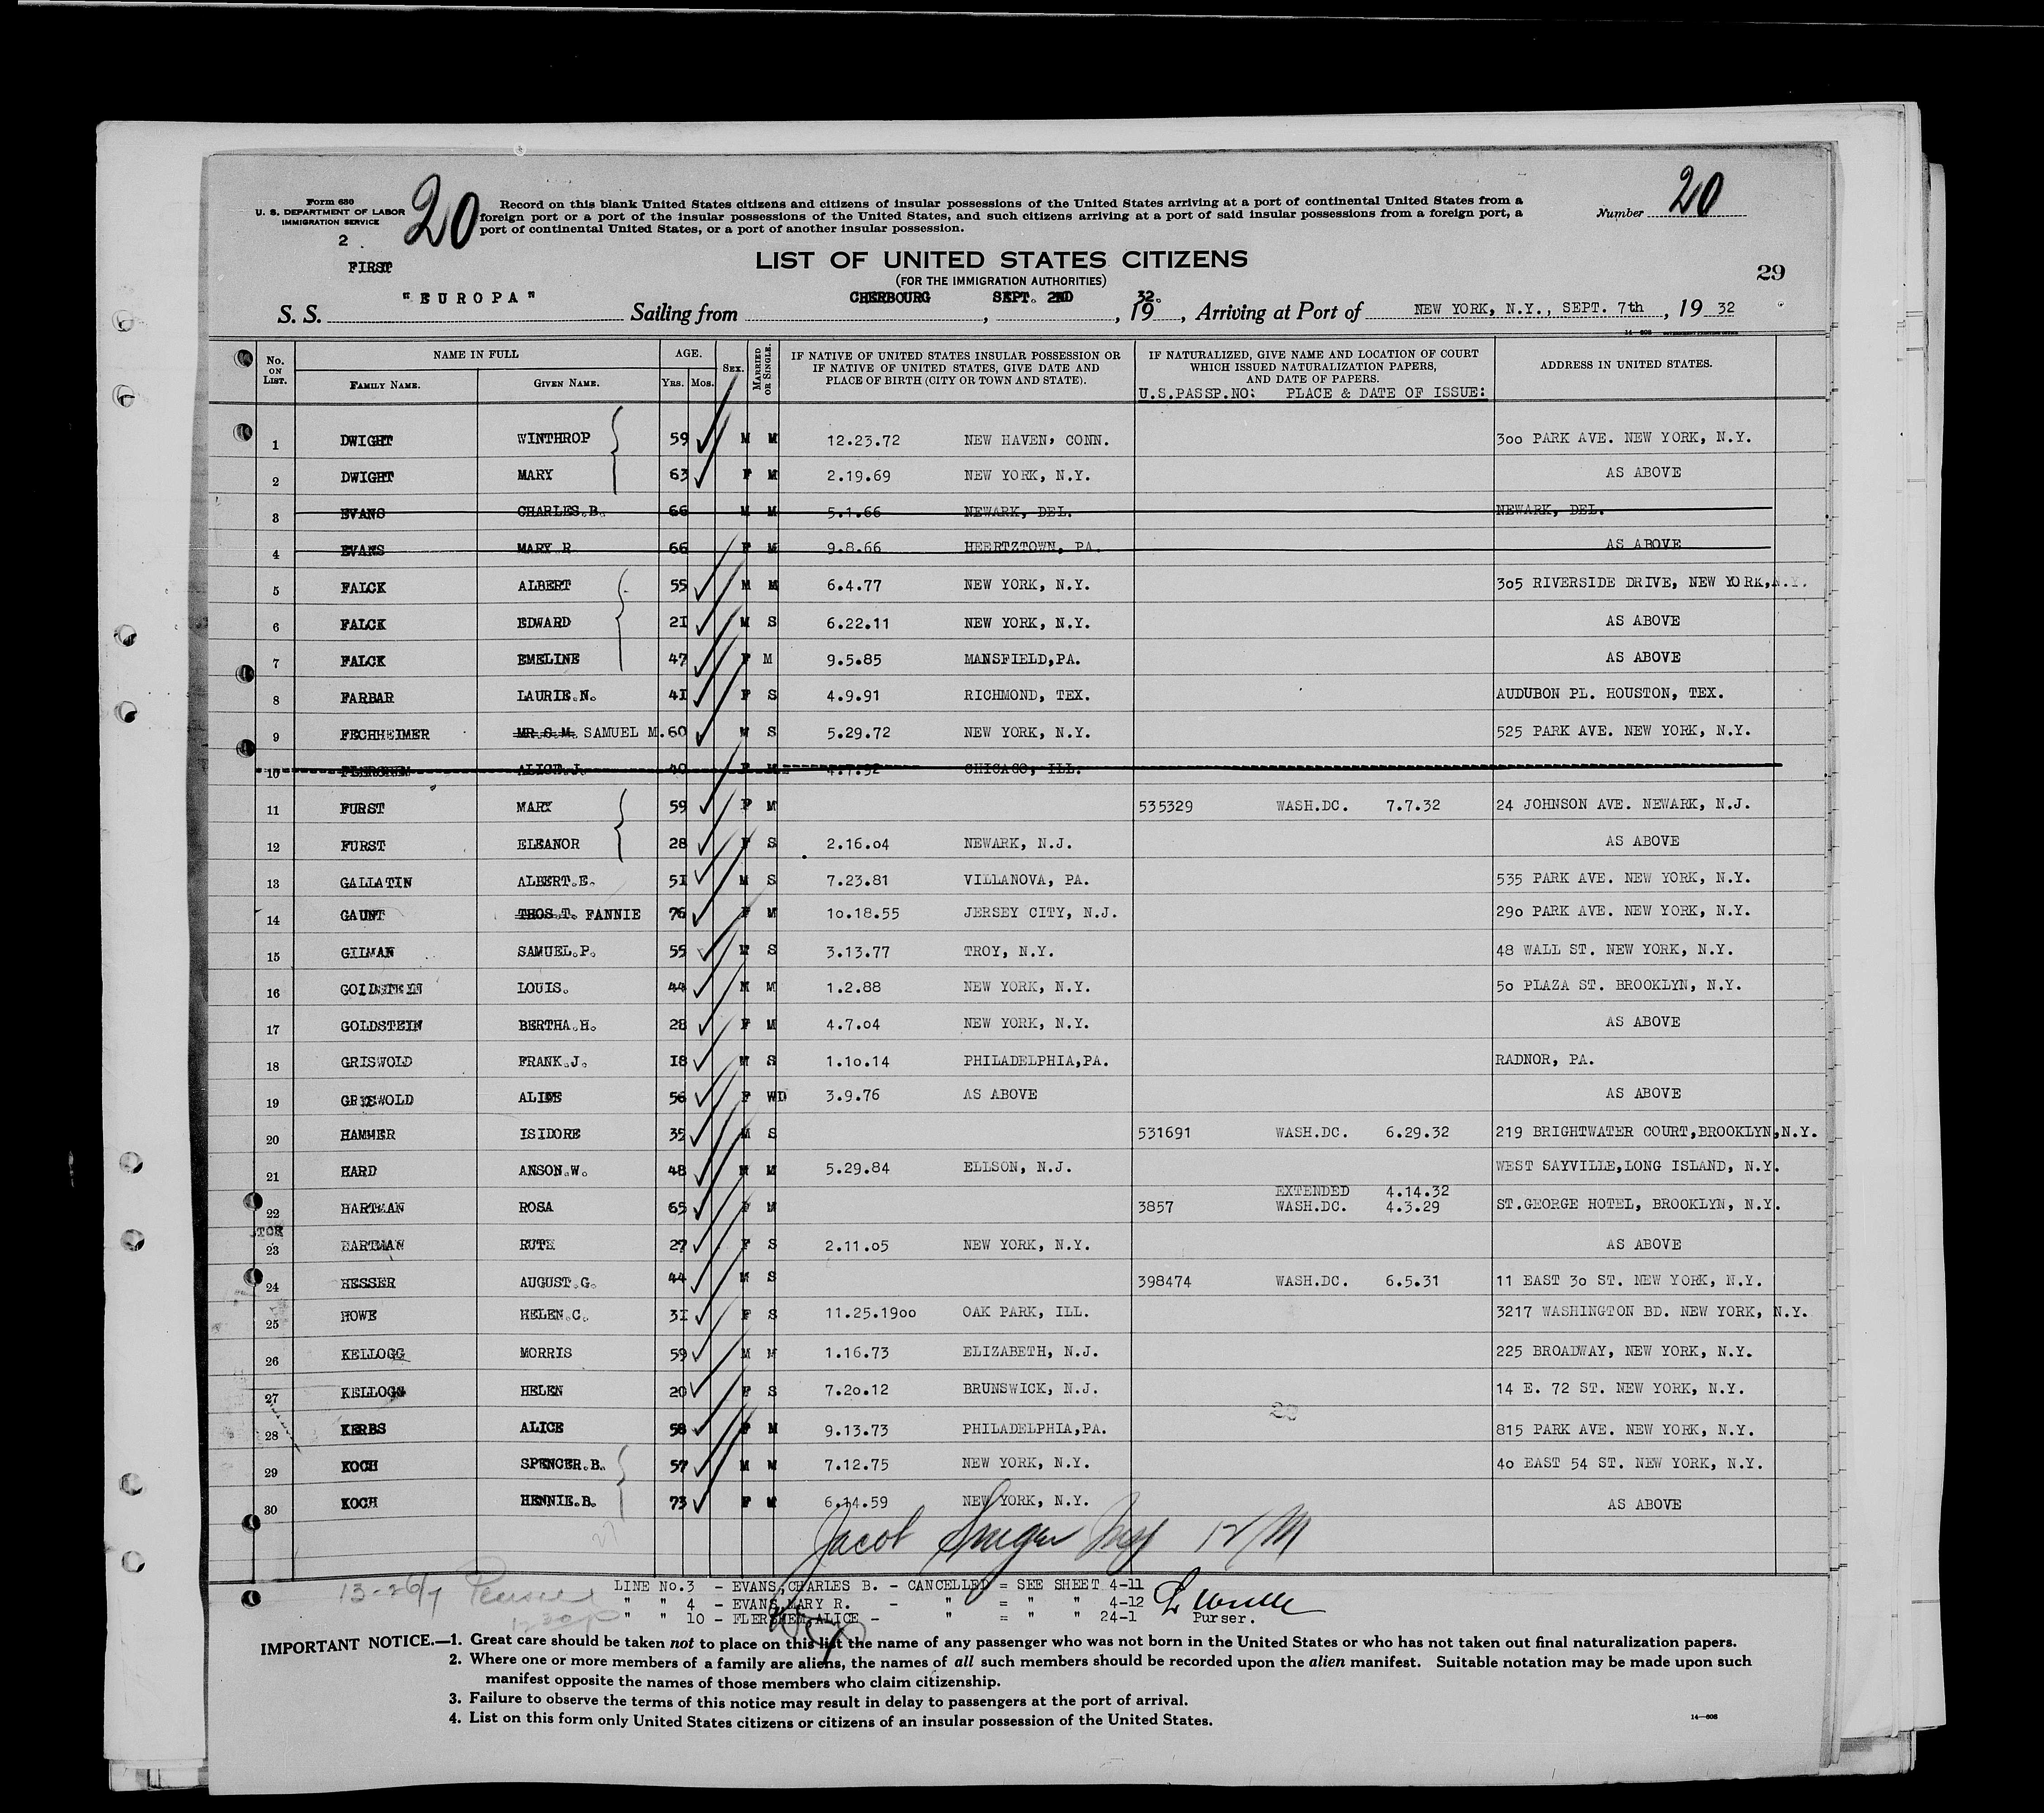 Form 630
U. S. DEPARTMENT OF LABOR
IMMIGRATION SERVICE
2 .
FIRST
20
Record on this blank United States citizens and citizens of insular possessions of the United States arriving at a port of continental United States from a
foreign port or a port of the insular possessions of the United States, and such citizens arriving at a port of said insular possessions from a foreign port, a
port of continental United States, or a port of another insular possession.
Number 20
LIST OF UNITED STATES CITIZENS
(FOR THE IMMIGRATION AUTHORITIES)
29
S. S. "EUROPA" Sailing from CHERBOURG , SEPT. 2ND , 19 32. , Arriving at Port of NEW YORK, N.Y., SEPT. 7th , 19 32
14—606 GOVERNMENT PRINTING OFFICE
No. ON LIST. NAME IN FULL FAMILY NAME. GIVEN NAME. AGE. YRS. MOS. SEX. MARRIED OR SINGLE. IF NATIVE OF UNITED STATES INSULAR POSSESSION OR IF NATIVE OF UNITED STATES, GIVE DATE AND PLACE OF BIRTH (CITY OR TOWN AND STATE). IF NATURALIZED, GIVE NAME AND LOCATION OF COURT WHICH ISSUED NATURALIZATION PAPERS, AND DATE OF PAPERS. ADDRESS IN UNITED STATES.
U.S.PASSP.NO: PLACE & DATE OF ISSUE:
1 DWIGHT WINTHROP 59 M M 12.23.72 NEW HAVEN, CONN. 300 PARK AVE. NEW YORK, N.Y.
2 DWIGHT MARY 63 F M 2.19.69 NEW YORK, N.Y. AS ABOVE
3 EVANS CHARLES.B. 66 M M 5.1.66 NEWARK, DEL. NEWARK, DEL.
4 EVANS MARY R 66 F M 9.8.66 HEERTZTOWN, PA. AS ABOVE
5 FALCK ALBERT 55 M M 6.4.77 NEW YORK, N.Y. 305 RIVERSIDE DRIVE, NEW YORK,N.Y.
6 FALCK EDWARD 21 M S 6.22.11 NEW YORK, N.Y. AS ABOVE
7 FALCK EMELINE 47 F M 9.5.85 MANSFIELD,PA. AS ABOVE
8 FARBAR LAURIE.N. 41 F S 4.9.91 RICHMOND, TEX. AUDUBON PL. HOUSTON, TEX.
9 FECHHEIMER MR.S.M. SAMUEL M. 60 M S 5.29.72 NEW YORK, N.Y. 525 PARK AVE. NEW YORK, N.Y.
10 FLERSHEM ALICE.J. 40 F M 4.7.92 CHICAGO, ILL.
11 FURST MARY 59 F M 535329 WASH.DC. 7.7.32 24 JOHNSON AVE. NEWARK, N.J.
12 FURST ELEANOR 28 F S 2.16.04 NEWARK, N.J. AS ABOVE
13 GALLATIN ALBERT.E. 51 M S 7.23.81 VILLANOVA, PA. 535 PARK AVE. NEW YORK, N.Y.
14 GAUNT THOS.T. FANNIE 76 F M 10.18.55 JERSEY CITY, N.J. 290 PARK AVE. NEW YORK, N.Y.
15 GILMAN SAMUEL.P. 55 M S 3.13.77 TROY, N.Y. 48 WALL ST. NEW YORK, N.Y.
16 GOLDSTEIN LOUIS. 44 M M 1.2.88 NEW YORK, N.Y. 50 PLAZA ST. BROOKLYN, N.Y.
17 GOLDSTEIN BERTHA.H. 28 F M 4.7.04 NEW YORK, N.Y. AS ABOVE
18 GRISWOLD FRANK.J. 18 M S 1.10.14 PHILADELPHIA,PA. RADNOR, PA.
19 GRISWOLD ALICE 56 F WD 3.9.76 AS ABOVE AS ABOVE
20 HAMMER ISIDORE 35 M S 531691 WASH.DC. 6.29.32 219 BRIGHTWATER COURT,BROOKLYN,N.Y.
21 HARD ANSON.W. 48 M M 5.29.84 ELLSON, N.J. WEST SAYVILLE,LONG ISLAND, N.Y.
EXTENDED 4.14.32
22 HARTMAN ROSA 65 F M 3857 WASH.DC. 4.3.29 ST.GEORGE HOTEL, BROOKLYN, N.Y.
23 HARTMAN RUTH 27 F S 2.11.05 NEW YORK, N.Y. AS ABOVE
24 HESSER AUGUST.G. 44 M S 398474 WASH.DC. 6.5.31 11 EAST 30 ST. NEW YORK, N.Y.
25 HOWE HELEN.C. 31 F S 11.25.1900 OAK PARK, ILL. 3217 WASHINGTON BD. NEW YORK, N.Y.
26 KELLOGG MORRIS 59 M M 1.16.73 ELIZABETH, N.J. 225 BROADWAY, NEW YORK, N.Y.
27 KELLOGG HELEN 20 F S 7.20.12 BRUNSWICK, N.J. 14 E. 72 ST. NEW YORK, N.Y.
28 KERBS ALICE 58 F M 9.13.73 PHILADELPHIA,PA. 815 PARK AVE. NEW YORK, N.Y.
29 KOCH SPENCER.B. 57 M M 7.12.75 NEW YORK, N.Y. 40 EAST 54 ST. NEW YORK, N.Y.
30 KOCH HENNIE.B. 73 F M 6.14.59 NEW YORK, N.Y. AS ABOVE
27
Jacob 12 M
LINE No.3 - EVANS,CHARLES B. - CANCELLED = SEE SHEET 4-11
" " 4 - EVANS,MARY R. - " = " " 4-12
" " 10 - FLERSHEM,ALICE - " = " " 24-1
Purser.
IMPORTANT NOTICE.—1. Great care should be taken not to place on this list the name of any passenger who was not born in the United States or who has not taken out final naturalization papers.
2. Where one or more members of a family are aliens, the names of all such members should be recorded upon the alien manifest. Suitable notation may be made upon such
manifest opposite the names of those members who claim citizenship.
3. Failure to observe the terms of this notice may result in delay to passengers at the port of arrival.
4. List on this form only United States citizens or citizens of an insular possession of the United States.
14—606